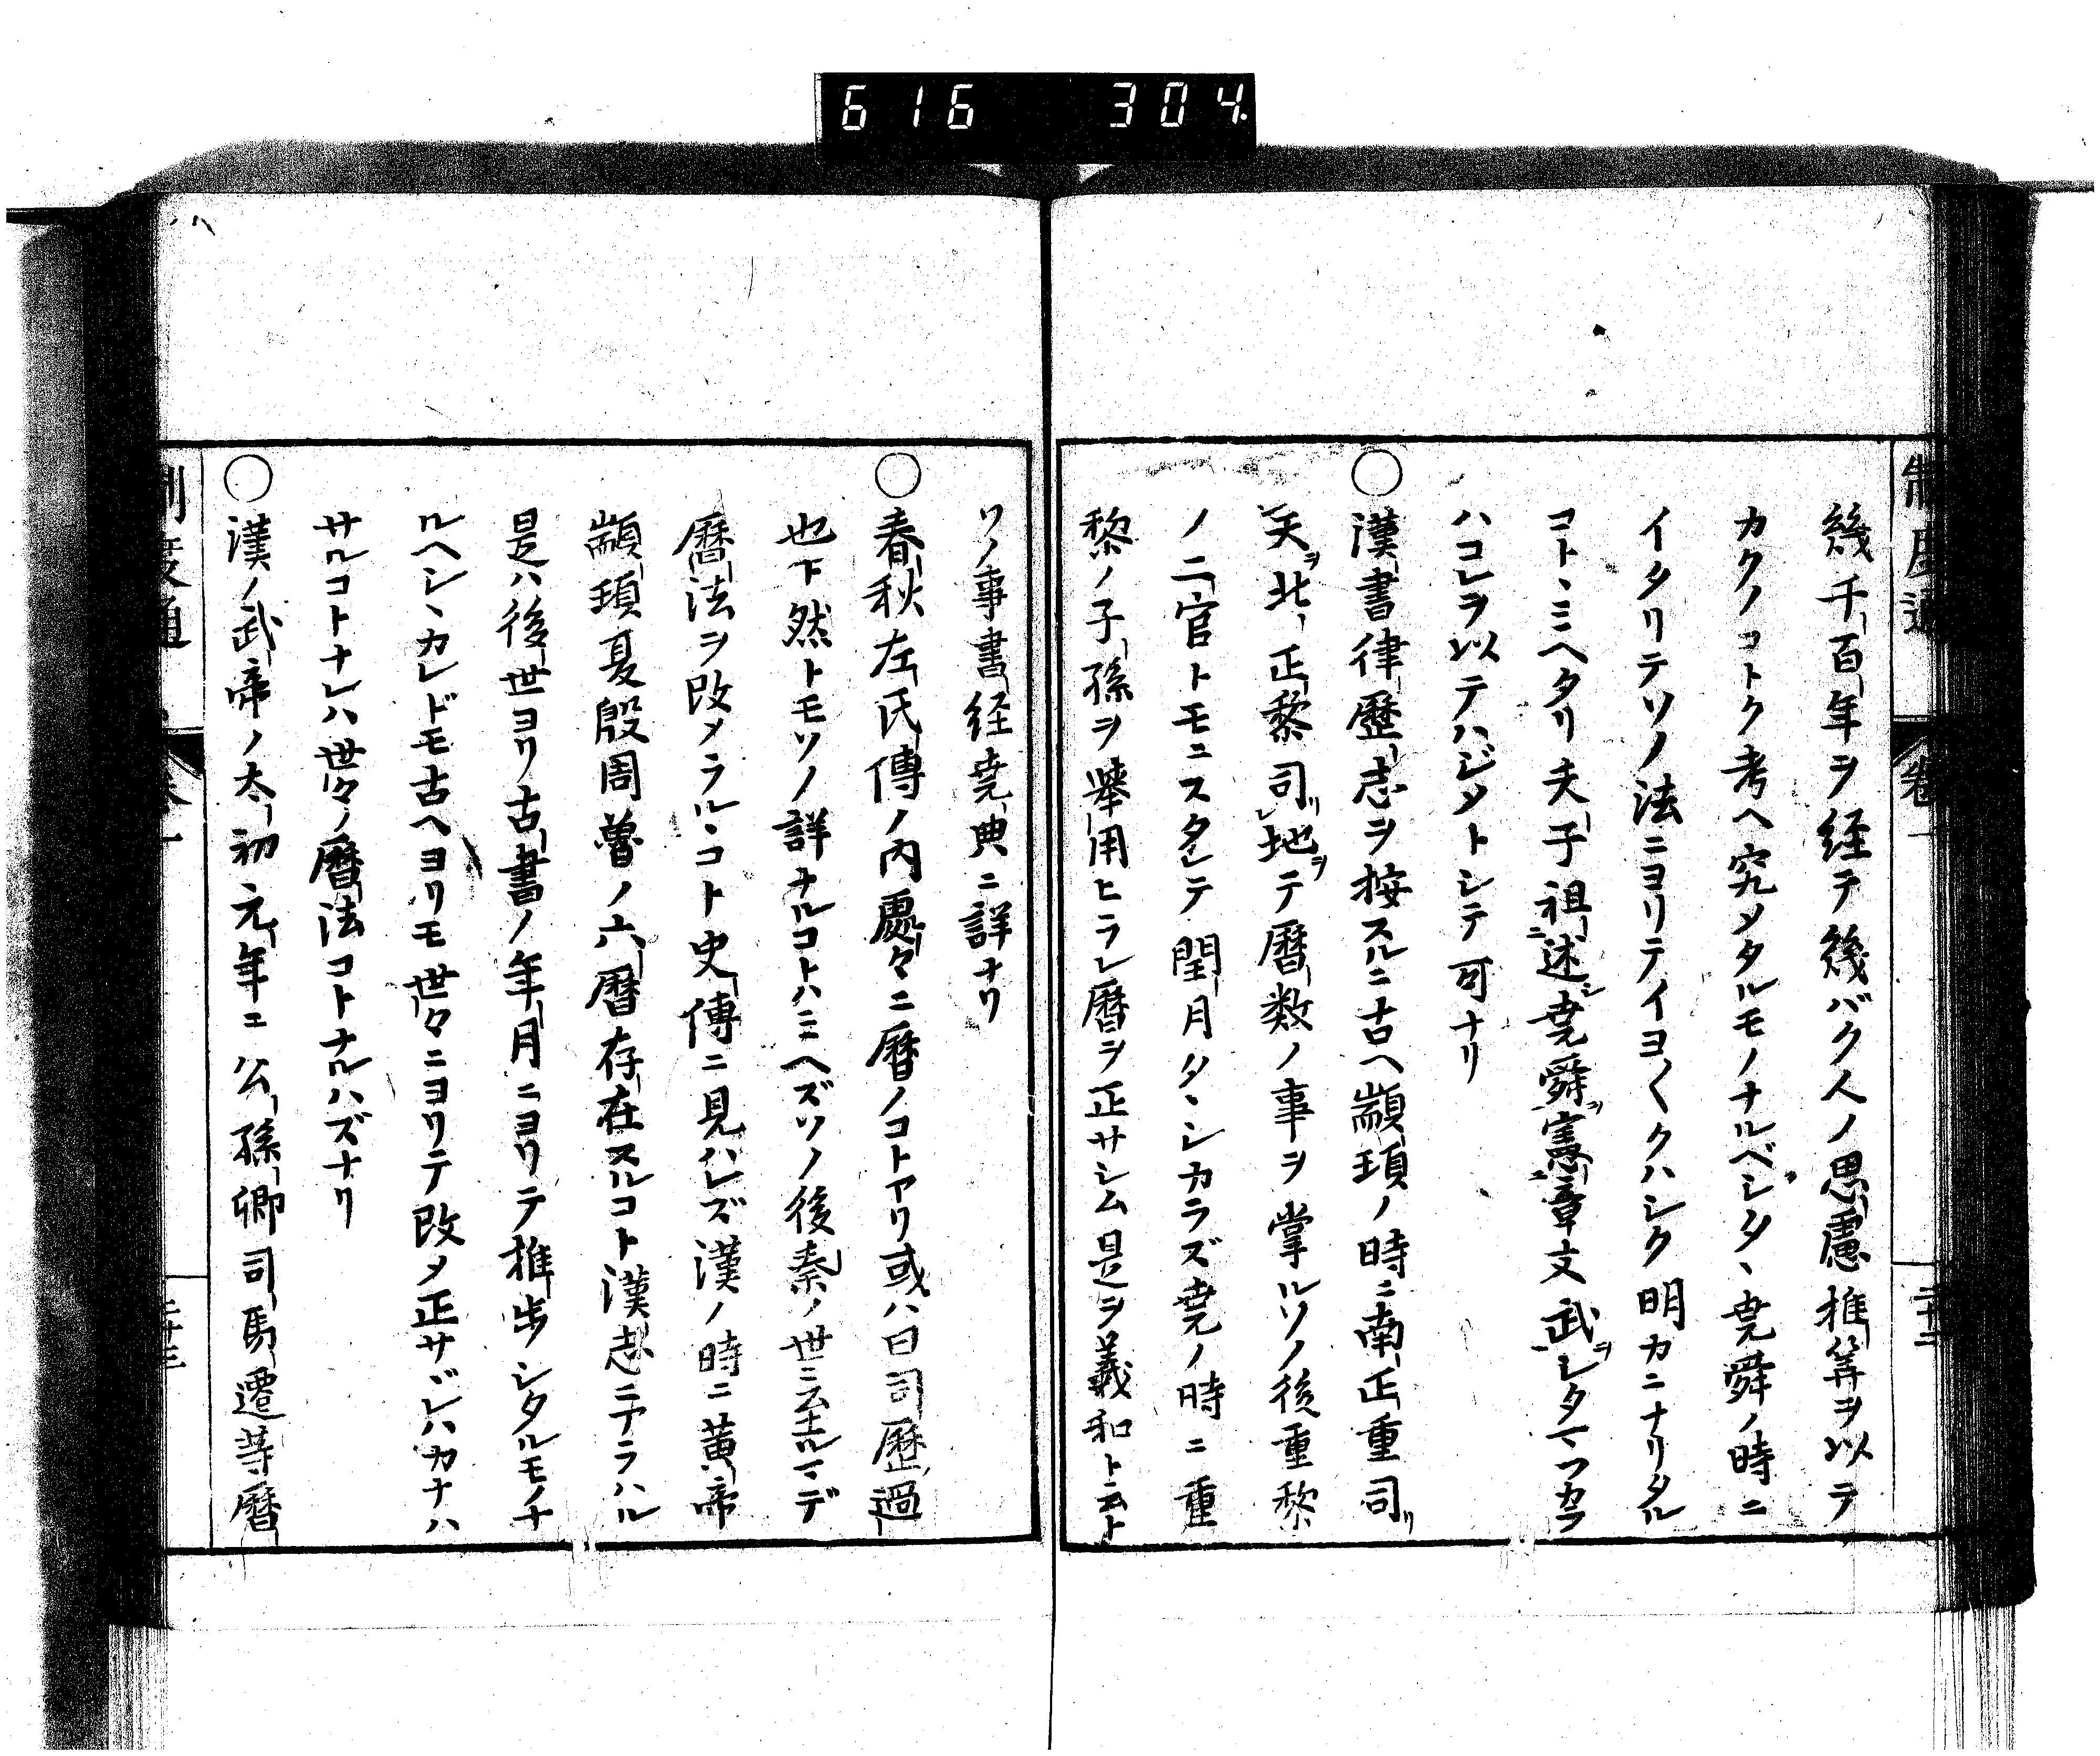 616 304
制度通 卷一 二十二
幾千百年ヲ経テ幾バク人ノ思慮推筭ヲ以テ
カクノコトク考ヘ究メタルモノナルベシタヽ尭舜ノ時ニ
イタリテソノ法ニヨリテイヨ〱クハシク明カニナリタル
コトヽミヘタリ夫子祖述シ尭舜ヲ憲章文武ヲシタマフカラ
ハコレヲ以テハジメトシテ可ナリ
○漢書律歴志ヲ按スルニ古ヘ顓頊ノ時ニ南正重司リ
天ヲ北正黎司リ地ヲテ暦数ノ事ヲ掌ルソノ後重黎
ノ二官トモニスタレテ閏月タヽシカラズ尭ノ時ニ重
黎ノ子孫ヲ舉用ヒラレ暦ヲ正サシム是ヲ羲和ト云ト
ソノ事書経尭典ニ詳ナリ
○春秋左氏傳ノ内處々ニ暦ノコトアリ或ハ曰司歴過
也ト然トモソノ詳ナルコトハミヘズソノ後秦ノ世ニ至ルマデ
暦法ヲ改メラルヽコト史傳ニ見ハレズ漢ノ時ニ黄帝
顓頊夏殷周魯ノ六暦存在スルコト漢志ニアラハル
是ハ後世ヨリ古書ノ年月ニヨリテ推歩シタルモノナ
ルヘシヽカレドモ古ヘヨリモ世々ニヨリテ改メ正サヾレハカナハ
サルコトナレハ世々ノ暦法コトナルハズナリ
○漢ノ武帝ノ太初元年ニ公孫卿司馬遷等暦
制度通 卷一 二十三